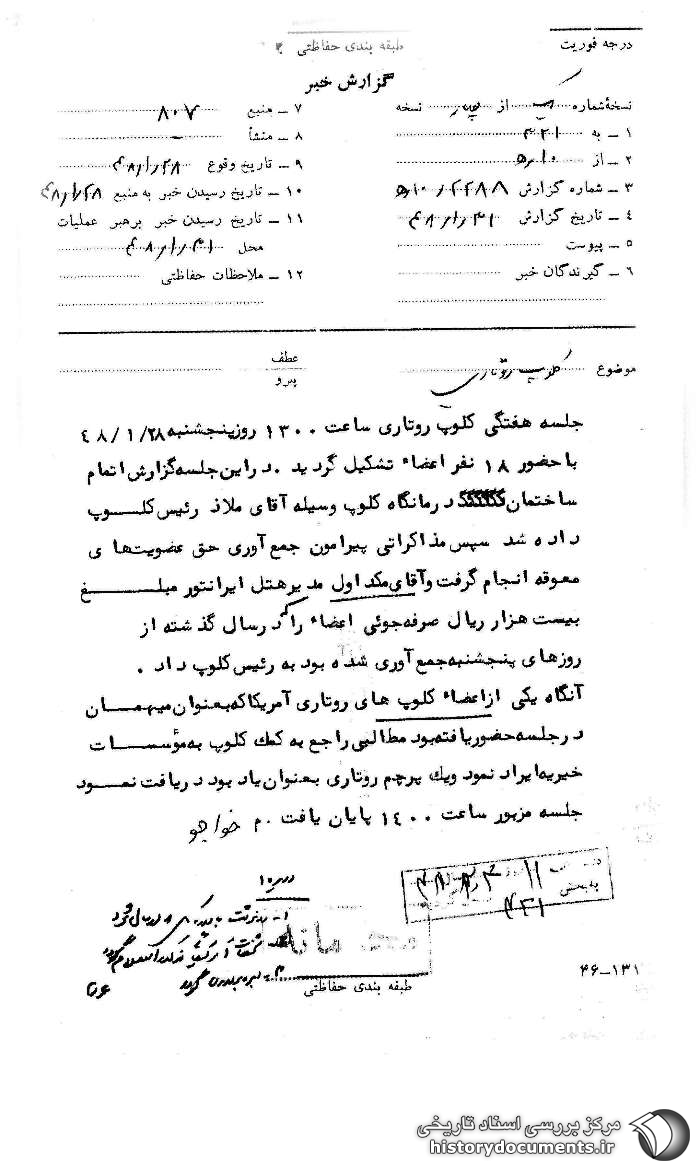 درجه فوریت
طبقه بندی حفاظتی
گزارش خبر
نسخهٔ شماره از نسخه
۱ ــ به ۳۴۱
۲ ــ از ۱۰ ه‍
۳ ــ شماره گزارش
۴ ــ تاریخ گزارش
۵ ــ پیوست
۶ ــ گیرندگان خبر
۷ ــ منبع ۸۰۷
۸ ــ منشأ
۹ ــ تاریخ وقوع ۴۸/۱/۲۸
۱۰ ــ تاریخ رسیدن خبر به منبع ۴۸/۱/۲۸
۱۱ ــ تاریخ رسیدن خبر برهبر عملیات
محل
۱۲ ــ ملاحظات حفاظتی
موضوع کلوپ روتاری
عطف
پیرو
جلسه هفتگی کلوپ روتاری ساعت ۱۳۰۰ روز پنجشنبه ۴۸/۱/۲۸
با حضور ۱۸ نفر اعضاء تشکیل گردید . در این جلسه گزارش اتمام
ساختمان درمانگاه کلوپ وسیله آقای ملاذ رئیس کلوپ
داده شد سپس مذاکراتی پیرامون جمع آوری حق عضویت های
معوقه انجام گرفت و آقای مکداول مدیر هتل ایرانتور مبلغ
بیست هزار ریال صرفه جوئی اعضاء را که در سال گذشته از
روزهای پنجشنبه جمع آوری شده بود به رئیس کلوپ داد .
آنگاه یکی از اعضاء کلوپ های روتاری آمریکا که بعنوان میهمان
در جلسه حضور یافته بود مطالبی راجع به کمک کلوپ به مؤسسات
خیریه ایراد نمود و یک پرچم روتاری بعنوان یادبود دریافت نمود
جلسه مزبور ساعت ۱۴۰۰ پایان یافت . م خواجو
محرمانه
طبقه بندی حفاظتی
۴۶-۱۳۱
مرکز بررسی اسناد تاریخی
historydocuments.ir